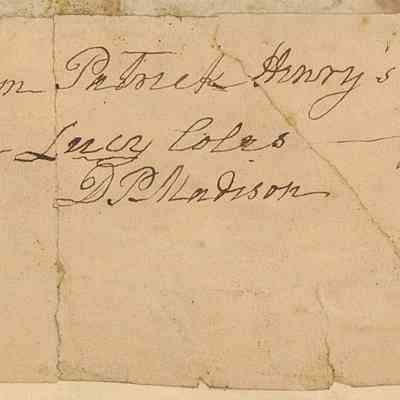 m Patrick Henry's
Lucy Coles
D P Madison